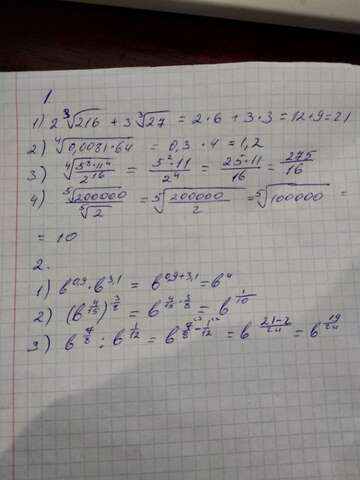 1.
1) 2 ∛216 + 3 ∛27 = 2·6 + 3·3 = 12+9 = 21
2) ∜0,0081·64 = 0,3 · 4 = 1,2
3) ∜(5⁸·11⁴/2¹⁶) = 5²·11/2⁴ = 25·11/16 = 275/16
4) ⁵√200000/⁵√2 = ⁵√(200000/2) = ⁵√100000 =
= 10
2.
1) b^0,9 · b^3,1 = b^(0,9+3,1) = b⁴
2) (b^(4/15))^(3/8) = b^(4/15 · 3/8) = b^(1/10)
3) b^(7/8) : b^(1/12) = b^(7/8 - 1/12) = b^((21-2)/24) = b^(19/24)